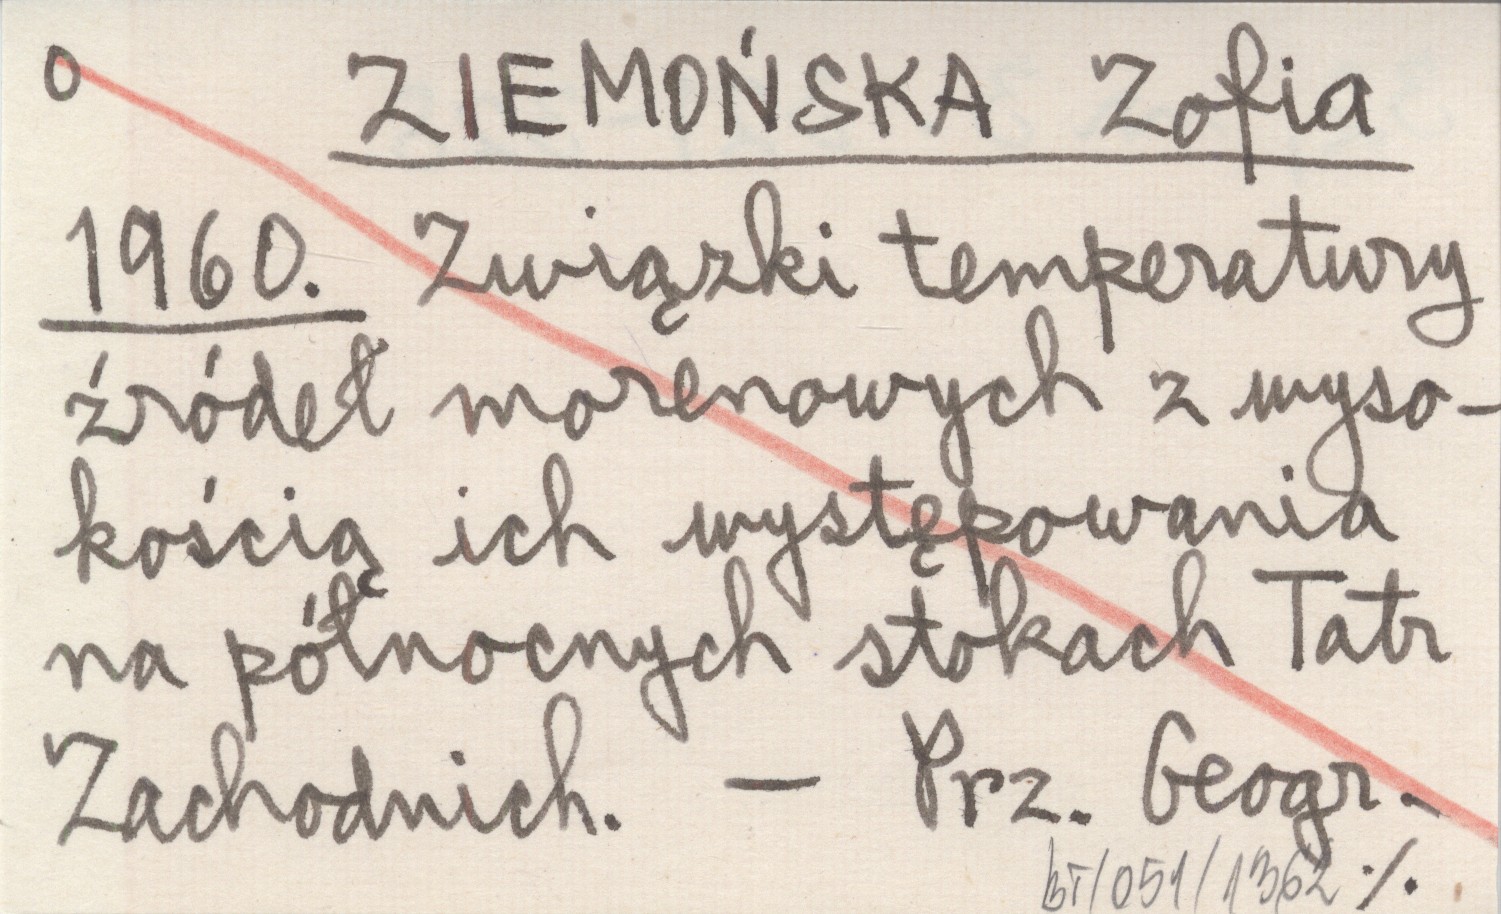 O ZIEMOŃSKA Zofia
1960. Związki temperatury
źródeł morenowych z wyso-
kością ich występowania
na północnych stokach Tatr
Zachodnich. — Prz. Geogr.
BT/051/1362 ·/.